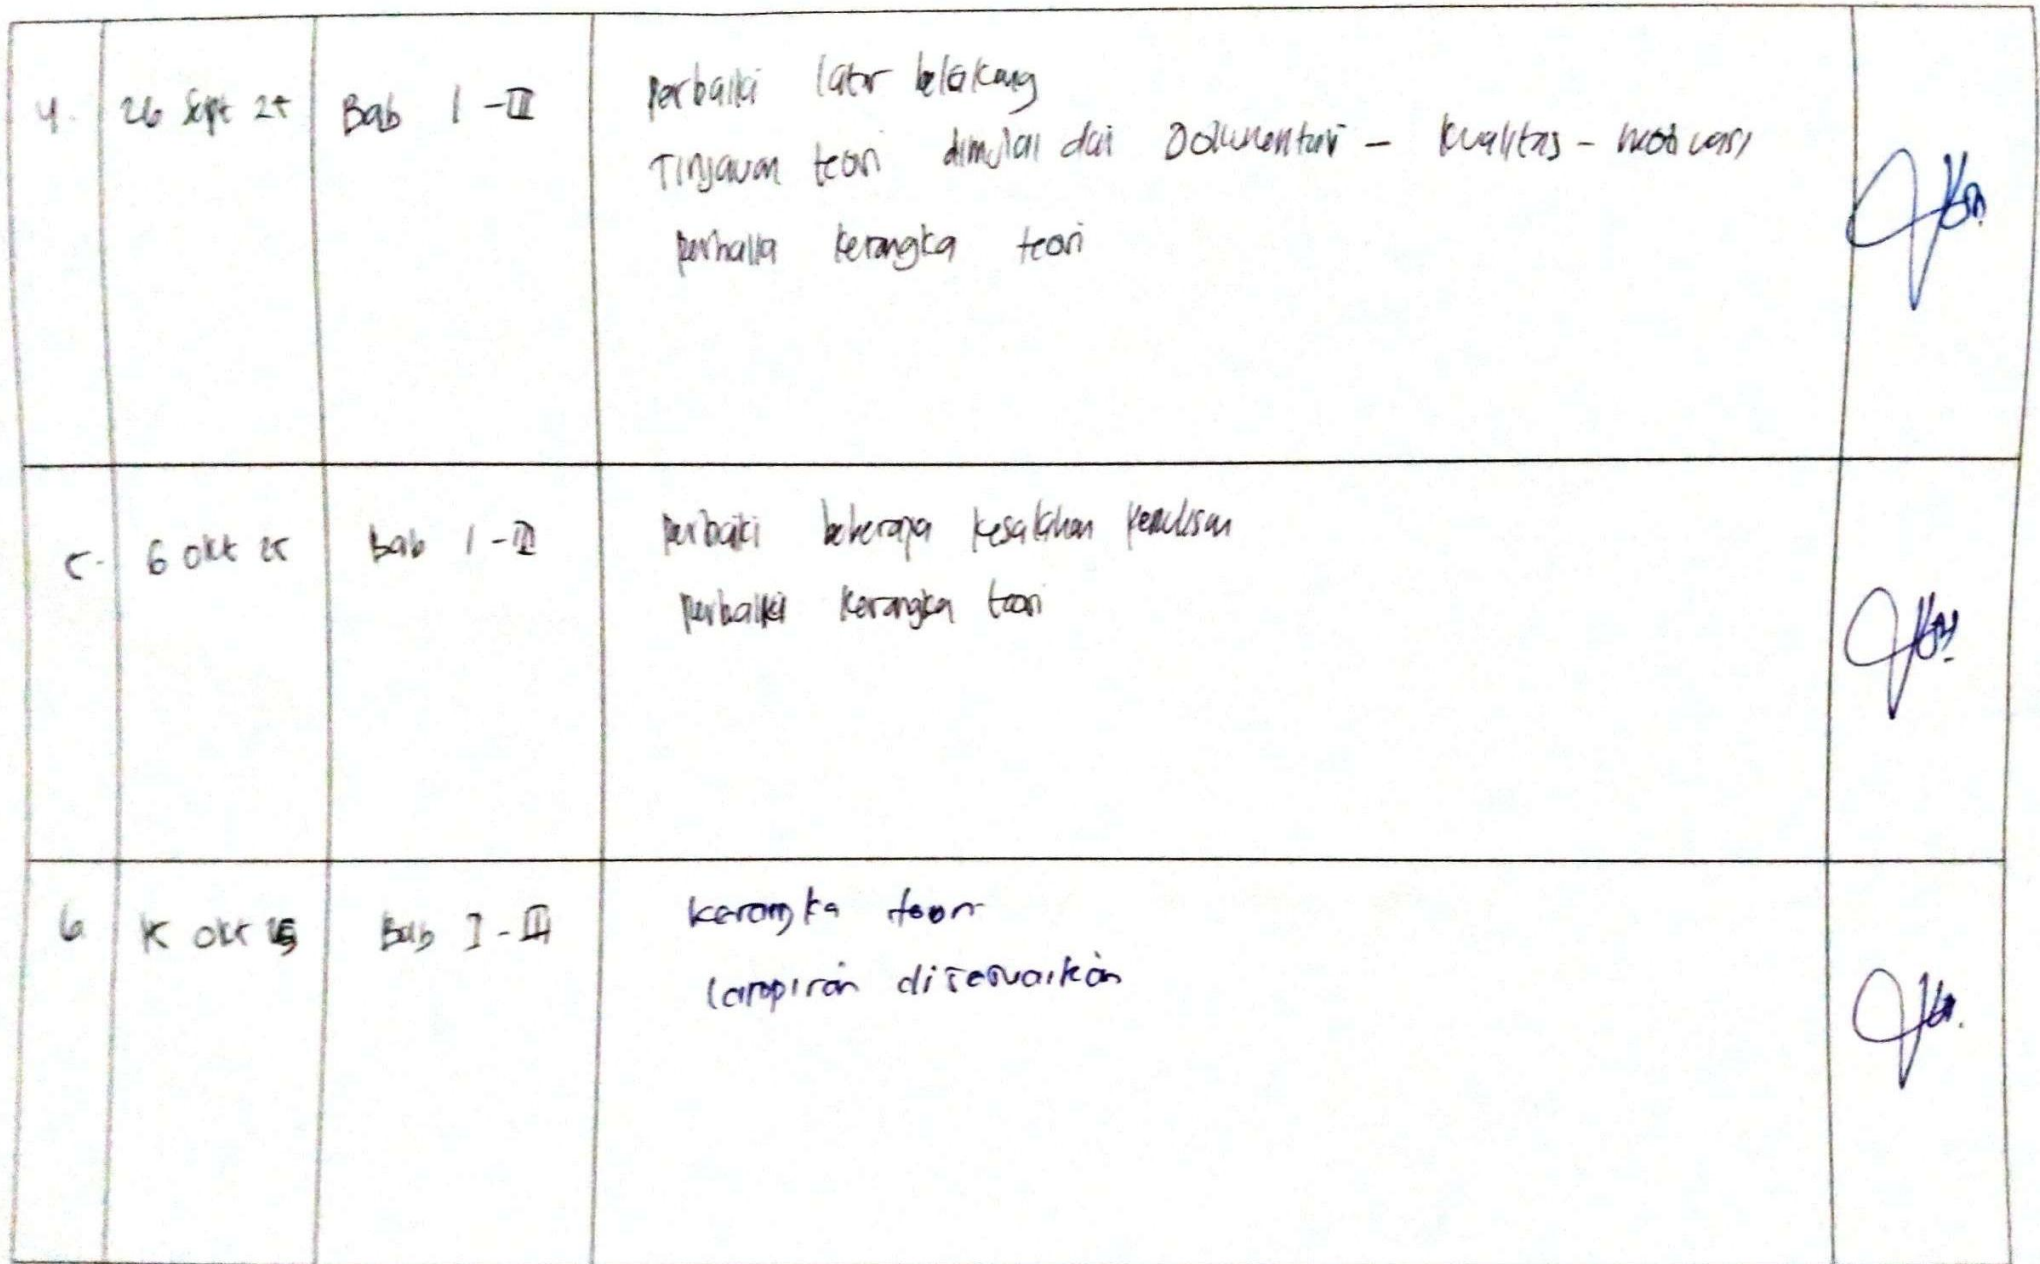 4. 26 Sept 25 Bab I - III Perbaiki latar belakang
Tinjauan teori dimulai dari Dokumentasi - kualitas - motivasi
perbaiki kerangka teori
5. 6 Okt 25 Bab I - III perbaiki beberapa kesalahan penulisan
perbaiki kerangka teori
6 15 Okt 25 Bab I - III kerangka teori
lampiran disesuaikan